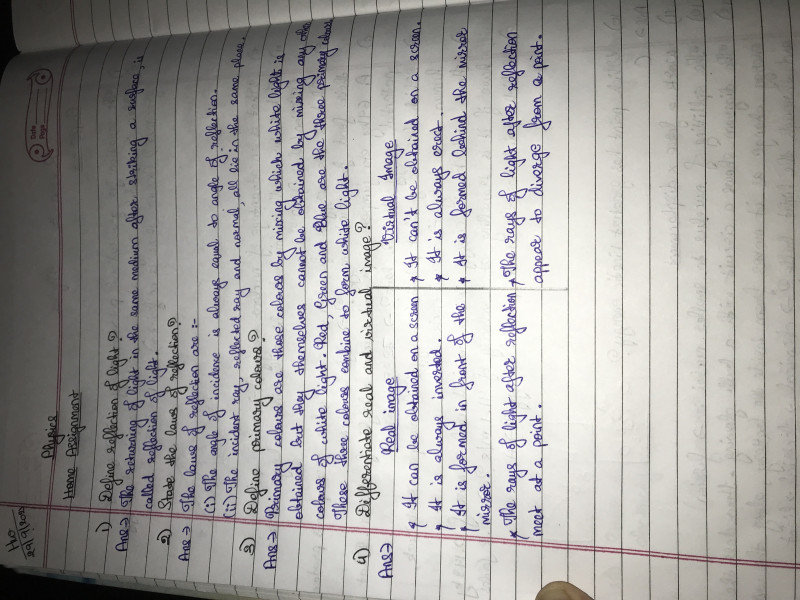 HW
Date
Page
Physics
Home Assignment
1) Define reflection of light?
Ans→ The returning of light in the same medium after striking a surface, is
called reflection of light.
2) State the laws of reflection?
Ans→ The laws of reflection are :-
(i) The angle of incidence is always equal to angle of reflection.
(ii) The incident ray, reflected ray and normal, all lie in the same plane.
3) Define primary colours?
Ans→ Primary colours are those colours by mixing which white light is
obtained but they themselves cannot be obtained by mixing any other
colours of white light. Red, Green and Blue are the three primary colours
These three colours combine to form white light.
4) Differentiate real and virtual image?
Ans→ Real image Virtual Image
* It can be obtained on a screen * It can't be obtained on a screen.
* It is always inverted. * It is always erect.
* It is formed in front of the * It is formed behind the mirror
mirror.
* The rays of light after reflection * The rays of light after reflection
meet at a point. appear to diverge from a point.